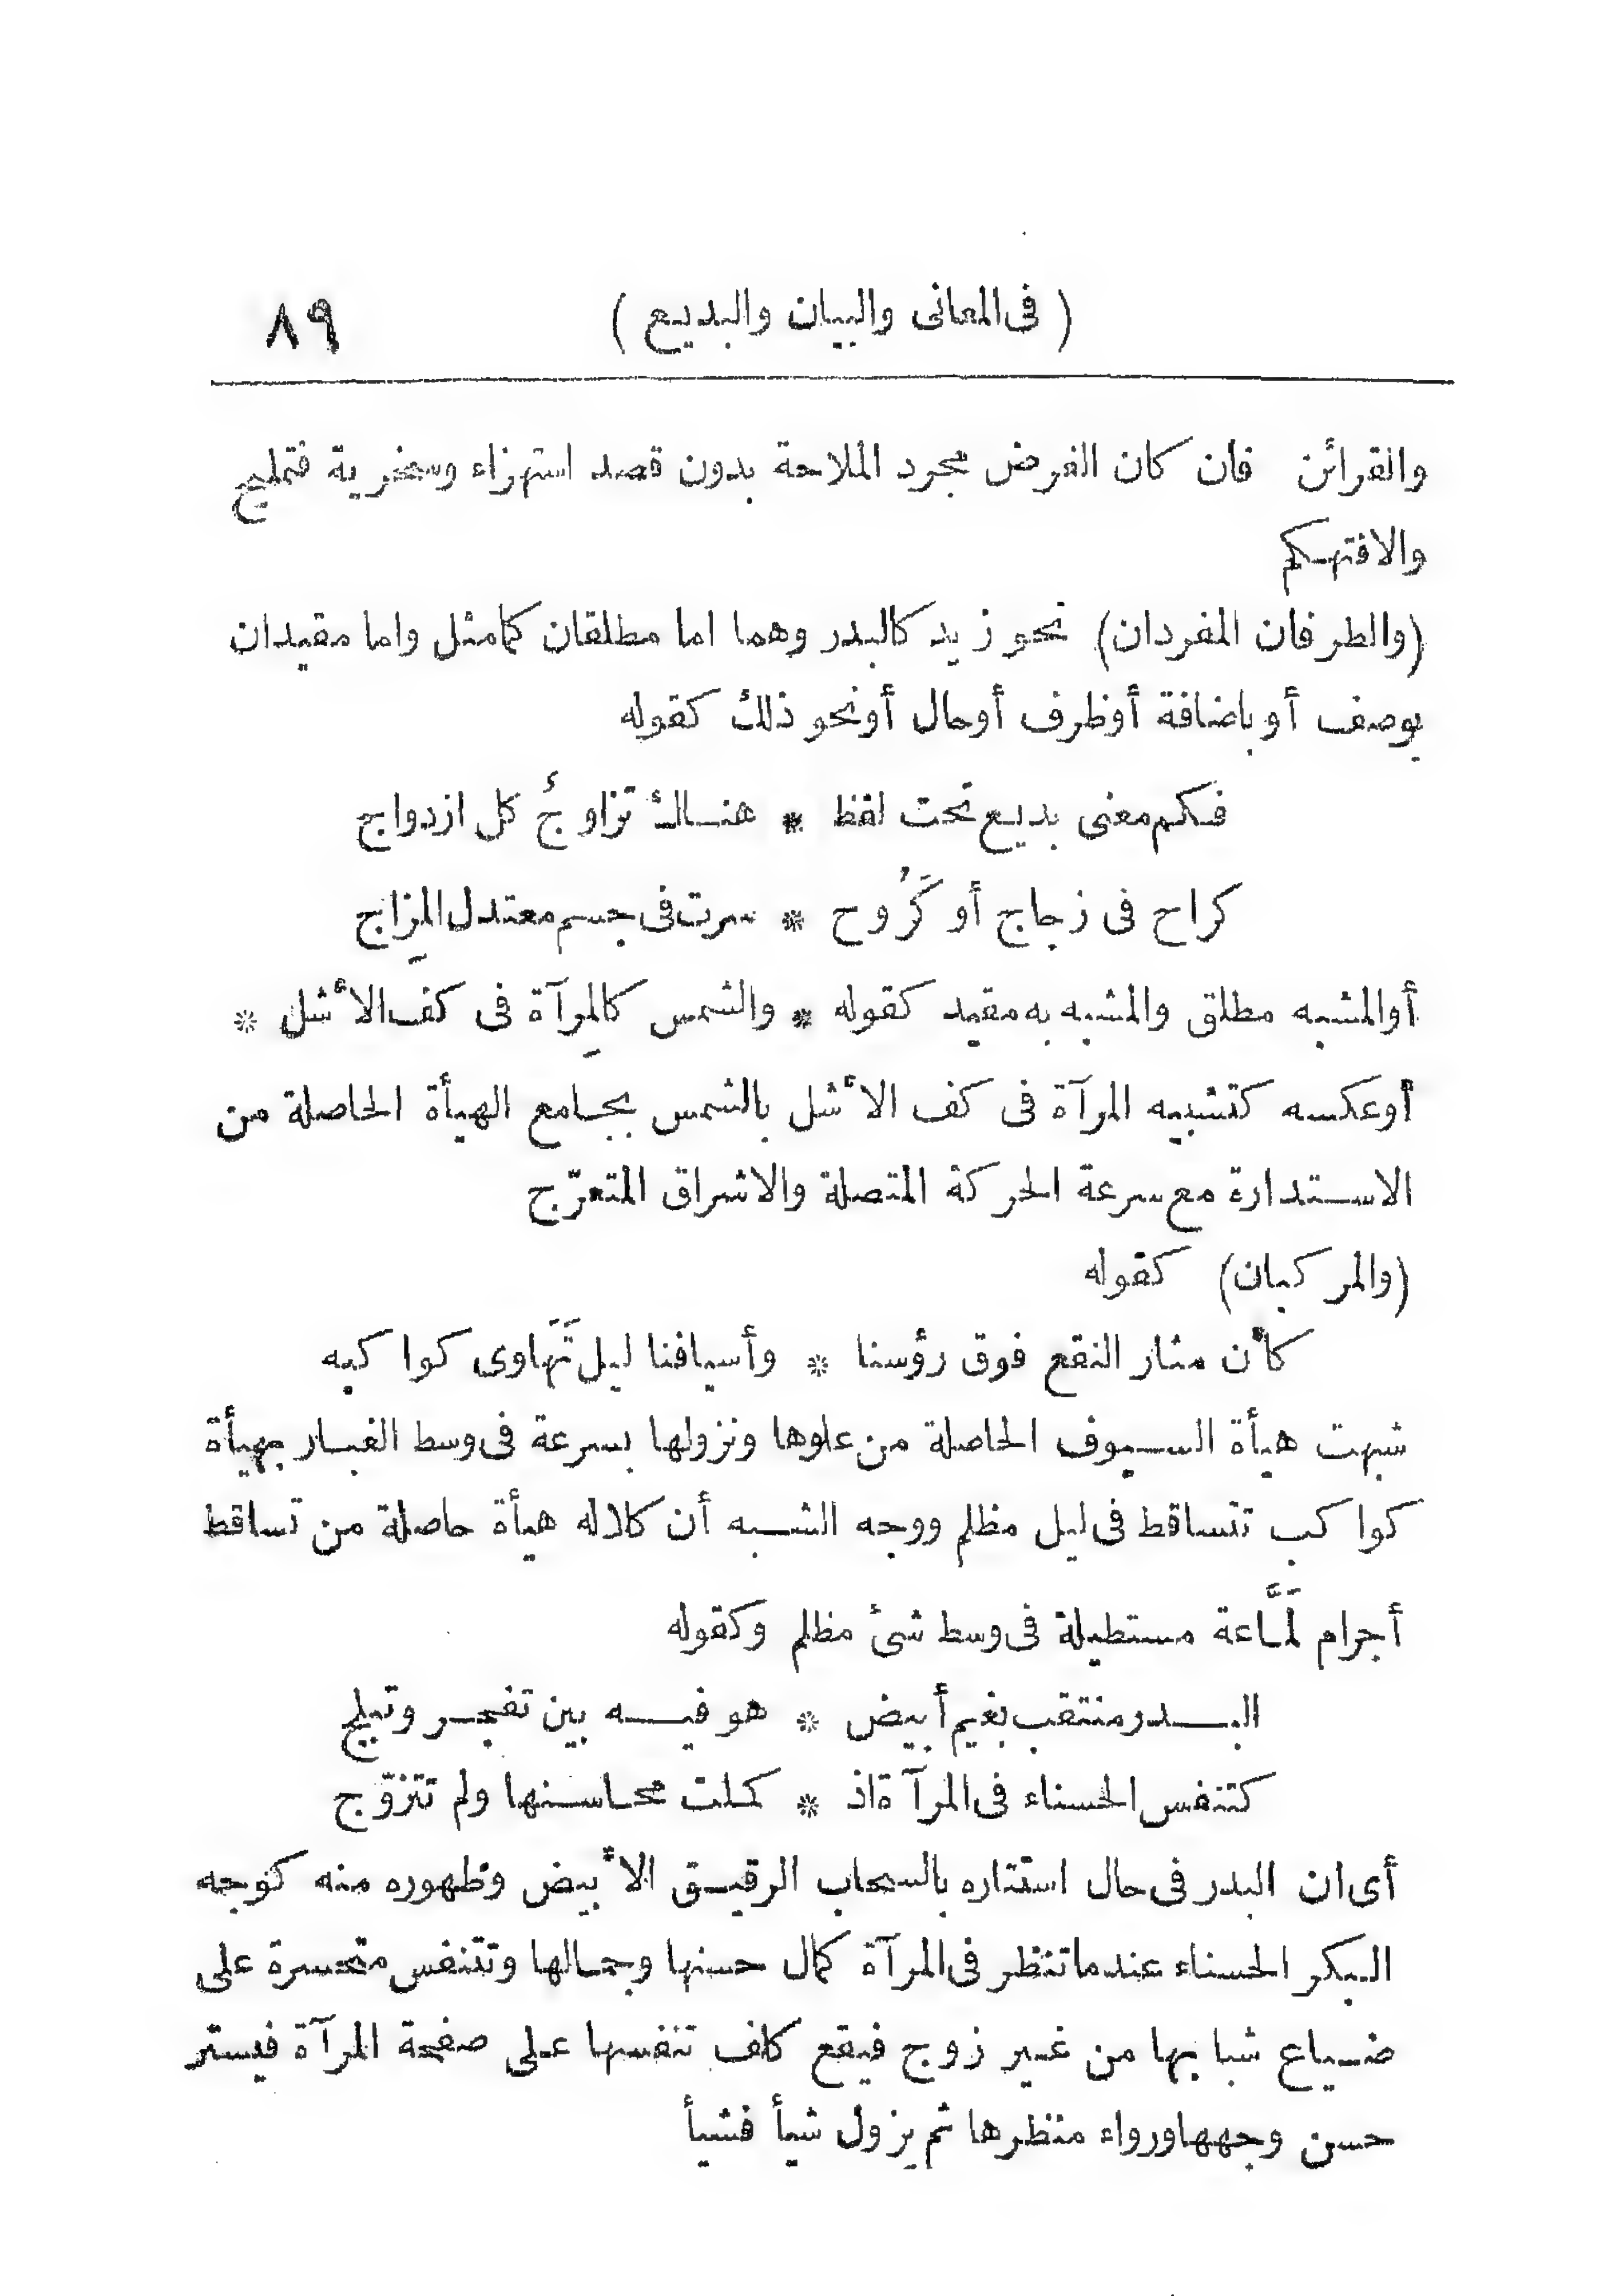 ( فى المعانى والبيان والبديع ) ٨٩
والقرائن فان كان الغرض مجرد الملاحة بدون قصد استهزاء وسخرية فتمليح
والافتهكم
(والطرفان المفردان) نحو زيد كالبدر وهما اما مطلقان كمامثل واما مقيدان
بوصف أو باضافة أوظرف أوحال أونحو ذلك كقوله
فكم معنى بديع تحت لفظ * هناك تزاوجُ كل ازدواج
كراح فى زجاج أو كَرُوح * سرت فى جسم معتدل المِزاج
أوالمشبه مطلق والمشبه به مقيد كقوله * والشمس كالمِرآة فى كف الأشل *
أوعكسه كتشبيه المرآة فى كف الأشل بالشمس بجامع الهيأة الحاصلة من
الاستدارة مع سرعة الحركة المتصلة والاشراق المتعرّج
(والمركبان) كقوله
كأن مثار النقع فوق رؤسنا * وأسيافنا ليل تَهَاوى كواكبه
شبهت هيأة السيوف الحاصلة من علوها ونزولها بسرعة فى وسط الغبار بهيأة
كواكب تتساقط فى ليل مظلم ووجه الشبه أن كلاله هيأة حاصلة من تساقط
أجرام لَمَّاعة مستطيلة فى وسط شئ مظلم وكقوله
البدر منتقب بغيم أبيض * هو فيه بين تفجر وتبلج
كتنفس الحسناء فى المرآة اذ * كملت محاسنها ولم تتزوّج
أى ان البدر فى حال استتاره بالسحاب الرقيق الأبيض وظهوره منه كوجه
البكر الحسناء عندما تنظر فى المرآة كمال حسنها وجمالها وتتنفس متحسرة على
ضياع شبابها من غير زوج فيقع كلف تنفسها على صفحة المرآة فيستر
حسن وجهها ورواء منظرها ثم يزول شيأ فشيأ